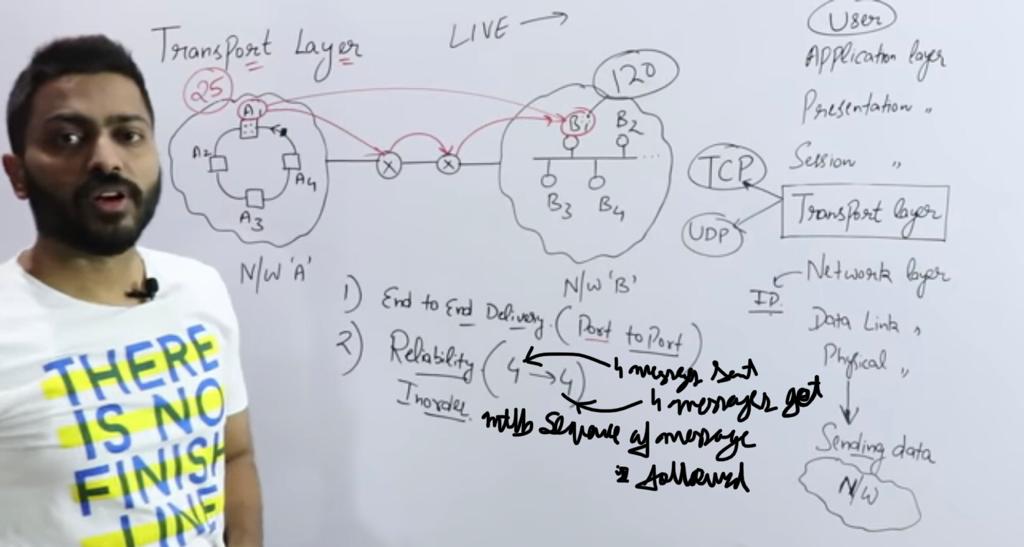 Transport Layer
LIVE →
25
120
A1
A2
A3
A4
B1
B2
...
B3 B4
N/W 'A'
N/W 'B'
X
X
1) End to End Delivery. (Port to Port)
2) Reliability (4 → 4)
Inorder
4 messages sent
4 messages get
sequence of message
is followed
User
Application layer
Presentation "
Session "
TCP
Transport layer
UDP
Network layer
IP.
Data Link "
Physical "
Sending data
N/W
THERE
IS NO
FINISH
LINE